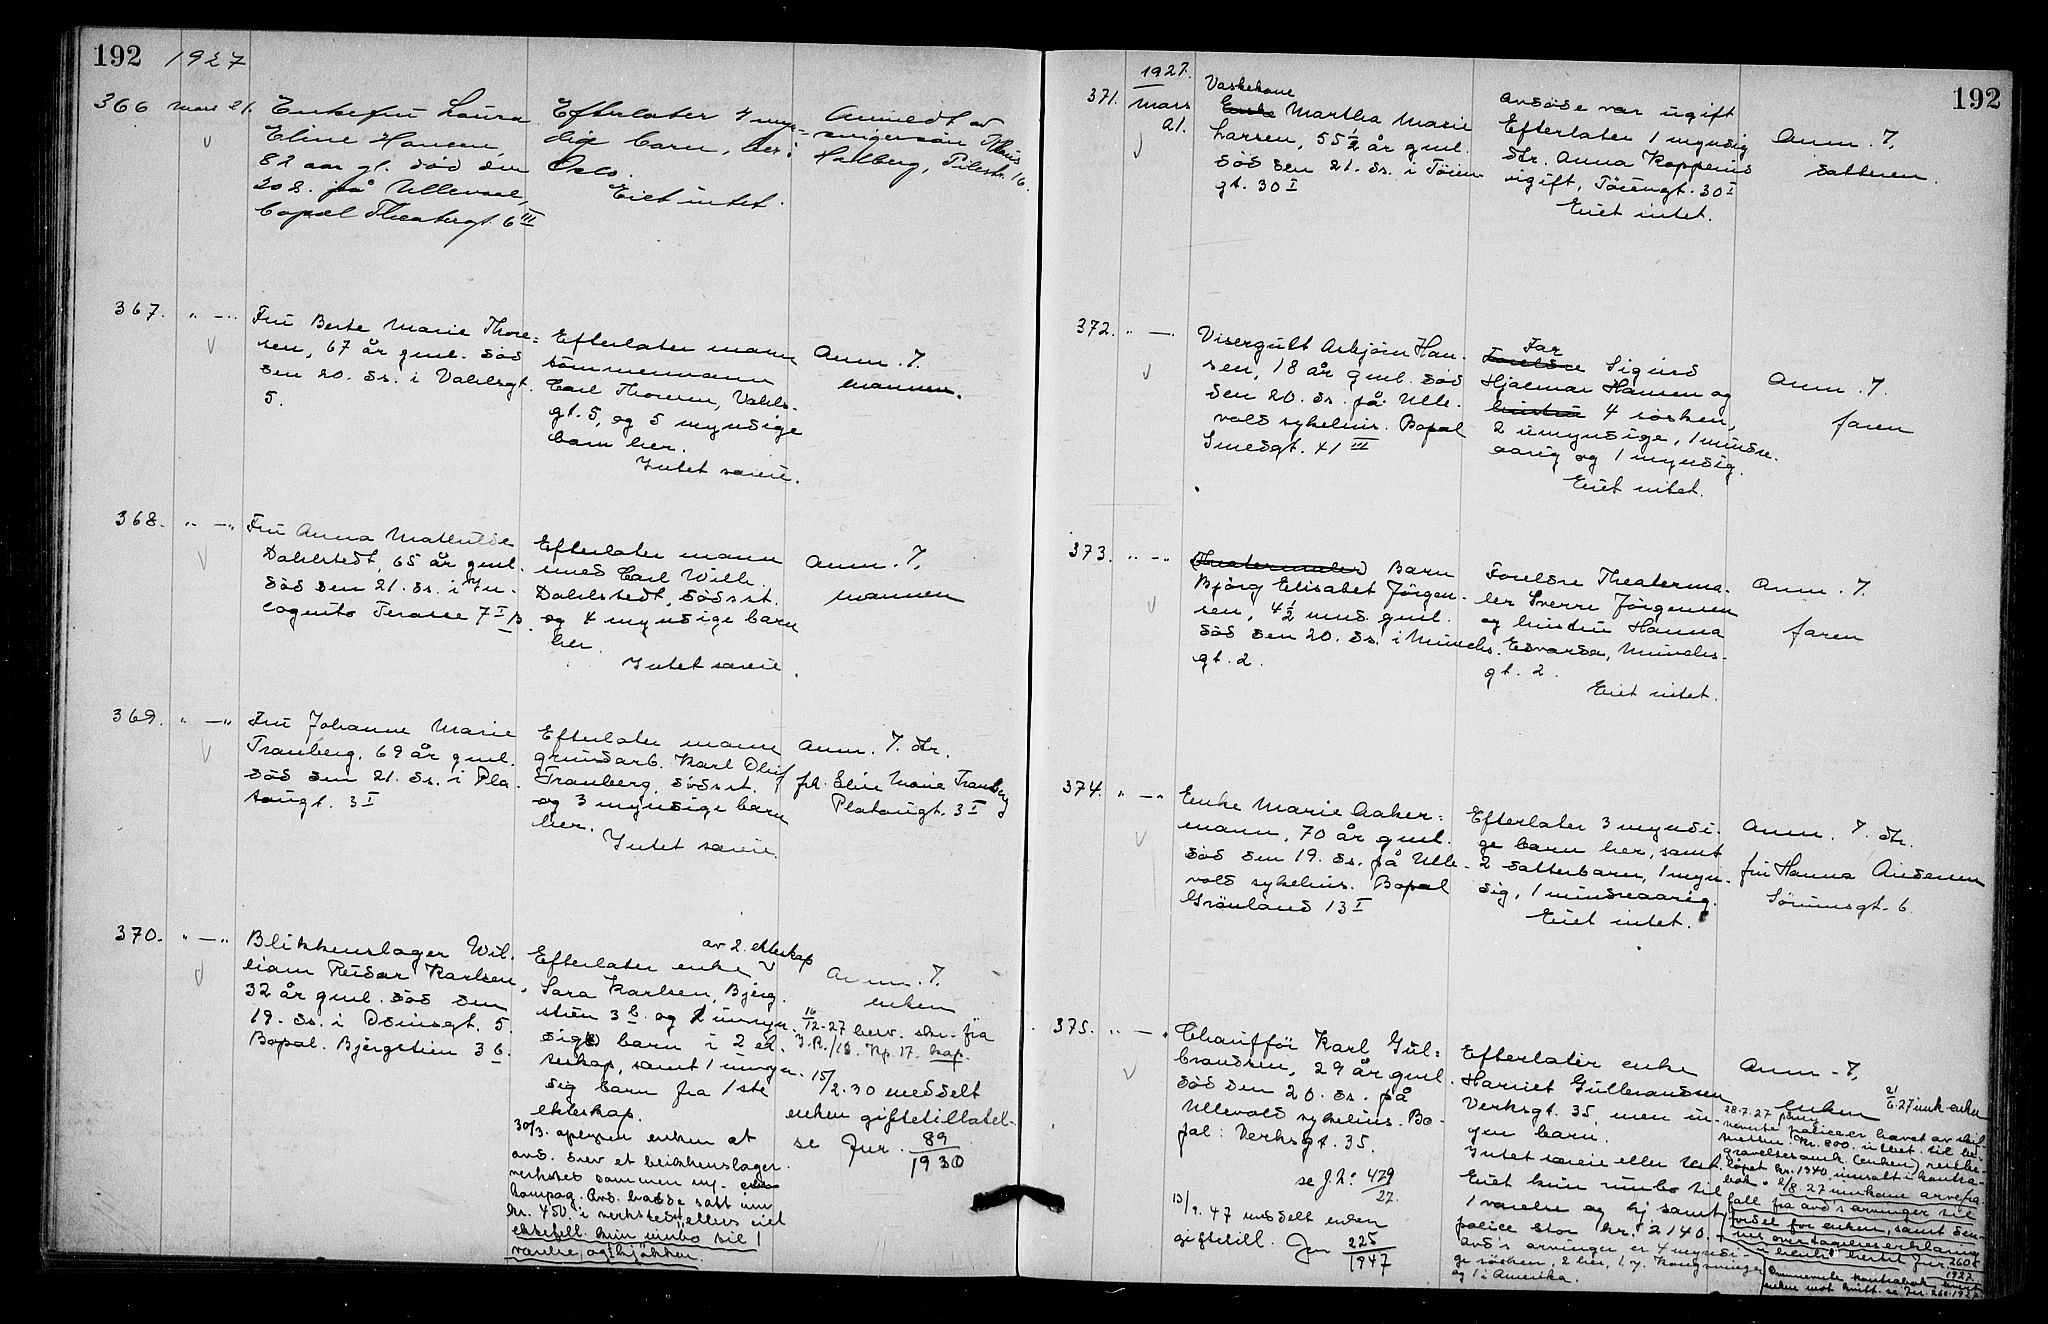 192 1927
366 Mars 21.
Enkefru Laura
Eline Hansen,
82 aar gl. død den
20 ds. på Ullevaal,
bopæl Theatergt. 6 III
Efterlater 4 myn=
dige barn, her i
Oslo.
Eiet intet.
Anmeldt av
svigersøn
Hallberg, Pilestr. 16.
367. " — "
Fru Berte Marie Thore=
sen, 67 år gml. død
den 20. ds. i Vahlsgt.
5.
Efterlater mann
tømmermann
Carl Thoresen, Vahls-
gt. 5, og 5 myndige
barn her.
Intet særeie.
Anm. 7.
mannen.
368. " — "
Fru Anna Mathilde
Dahlstedt, 65 år gml.
død den 21. ds. i In-
cognito Terasse 7 I B.
Efterlater mann
smed Carl Wilh.
Dahlstedt, dødsst.
og 4 myndige barn
her.
Intet særeie.
Anm. 7.
mannen
369. " — "
Fru Johanne Marie
Tranberg, 69 år gml.
død den 21. ds. i Pla-
tougt. 3 I
Efterlater mann
grundarb. Karl Oluf
Tranberg, dødsst.
og 3 myndige barn
her.
Intet særeie.
Anm. 7. dtr.
frk. Eline Marie Tranberg
Platougt. 3 I
370. " — "
Blikkenslager Wil-
liam Reidar Karlsen,
32 år gml. død den
19. ds. i Odinsgt. 5.
Bopal. Bjergstien 3 b.
av 2. ekteskap
Efterlater enke
Sara Karlsen, Bjerg-
stien 3 b. og 1 umyn-
dig barn i 2 ek-
teskap, samt 1 umyn-
dig barn fra 1ste
ekteskap.
30/3. oplyser enken at
avd. drev et blikkenslager-
verksted sammen m.
kompag. Avd. hadde satt inn
kr. 450. i verkstedet ellers eiet
ektefell. kun innbo til 1
værelse og kjøkken.
Anm. 7.
enken
16/12-27 berv. skr. fra
15/2.30 meddelt
enken giftetillatel-
se Jnr. 89/1930
1927. 192
371. Mars
21.
Vaskekone
Enke Martha Marie
Larsen, 55 1/2 år gml.
død den 21. ds. i Tøien-
gt. 30 I
Avdøde var ugift
Efterlater 1 myndig
dtr. Anna Kopperud
ugift, Tøiengt. 30 I
Eiet intet.
Anm. 7.
datteren.
372. " — "
Visergutt Asbjørn Han-
sen, 18 år gml. død
den 20. ds. på Ulle-
vold sykehus. Bopal
Smedgt. 41 III
Far
Foreldre Sigurd
Hjalmar Hansen og
hustru 4 søsken,
2 umyndige, 1 mindre-
aarig og 1 myndig.
Eiet intet.
Anm. 7.
faren
373. " — "
(Theatermaler) Barn
Bjørg Elisabet Jørgen-
sen, 4 1/2 mnd. gml.
død den 20. ds. i Munchs-
gt. 2.
Foreldre Theaterma-
ler Sverre Jørgensen
og hustru Hanna
Edvarda, Munchs-
gt. 2.
Eiet intet.
Anm. 7.
faren
374. " — "
Enke Marie Aaker=
mann, 70 år gml.
død den 19. ds. på Ulle-
vold sykehus. Bopal
Grønland 13 I
Efterlater 3 myndi-
ge barn her, samt
2 datterbarn, 1 myn-
dig, 1 mindreaarig.
Eiet intet.
Anm. 7. dtr.
fru Hanna Andersen
Sørumsgt. 6.
375. " — "
Chauffør Karl Gul=
brandsen, 29 år gml.
død den 20. ds. på
Ullevold sykehus. Bo-
pal: Verksgt. 35.
se J. No 479/27.
13/9. 47 meddelt enken
giftetill. Jnr 225/1947
Efterlater enke
Harriet Gulbrandsen
Verksgt. 35, men in-
gen barn.
Intet særeie eller test.
Eiet kun innbo til
1 værelse og kj samt
police stor kr. 2140.-
avd's arvinger er 4 myndi-
ge søsken, 2 her, 1 v. Kongsvinger
og 1 i Amerika.
Anm - 7.
enken
21/6.27 innk. enken
28.7.27
nevnte police er hævet av skif-
teretten kr. 800. utbet. til be-
gravelsesomk. (enken) restbe-
løpet kr. 1340 innsatt i kontra-
bok. 2/8.27 innkom arvefra-
fall fra avd's arvinger til
fordel for enken, samt den-
nes overtagelseserklæring
Jnr. 260/1927
Omnevnte kontrabok
enken mot kvitt. se Jnr. 260.1927